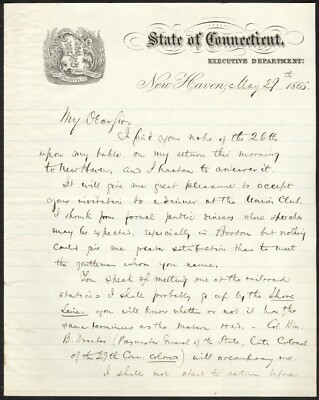 State of Connecticut,
EXECUTIVE DEPARTMENT:
New Haven, May 29th 1865.
My Dear Sir,
I find your note of the 26th
upon my table on my return this morning
to New Haven, and I hasten to answer it.
It will give me great pleasure to accept
your invitation to a dinner at the Union Club.
I shrink from formal public dinners where speeches
may be expected, especially in Boston but nothing
could give me greater satisfaction than to meet
the gentlemen whom you name.
You speak of meeting me at the railroad
station. I shall probably go up by the Shore
Line. you will know whether or not it has the
same terminus as the road. — Col. Wm.
B. Wooster (Paymaster General of the State, late Colonel
of the 29th Conn. colored) will accompany me.
I shall not start to return before